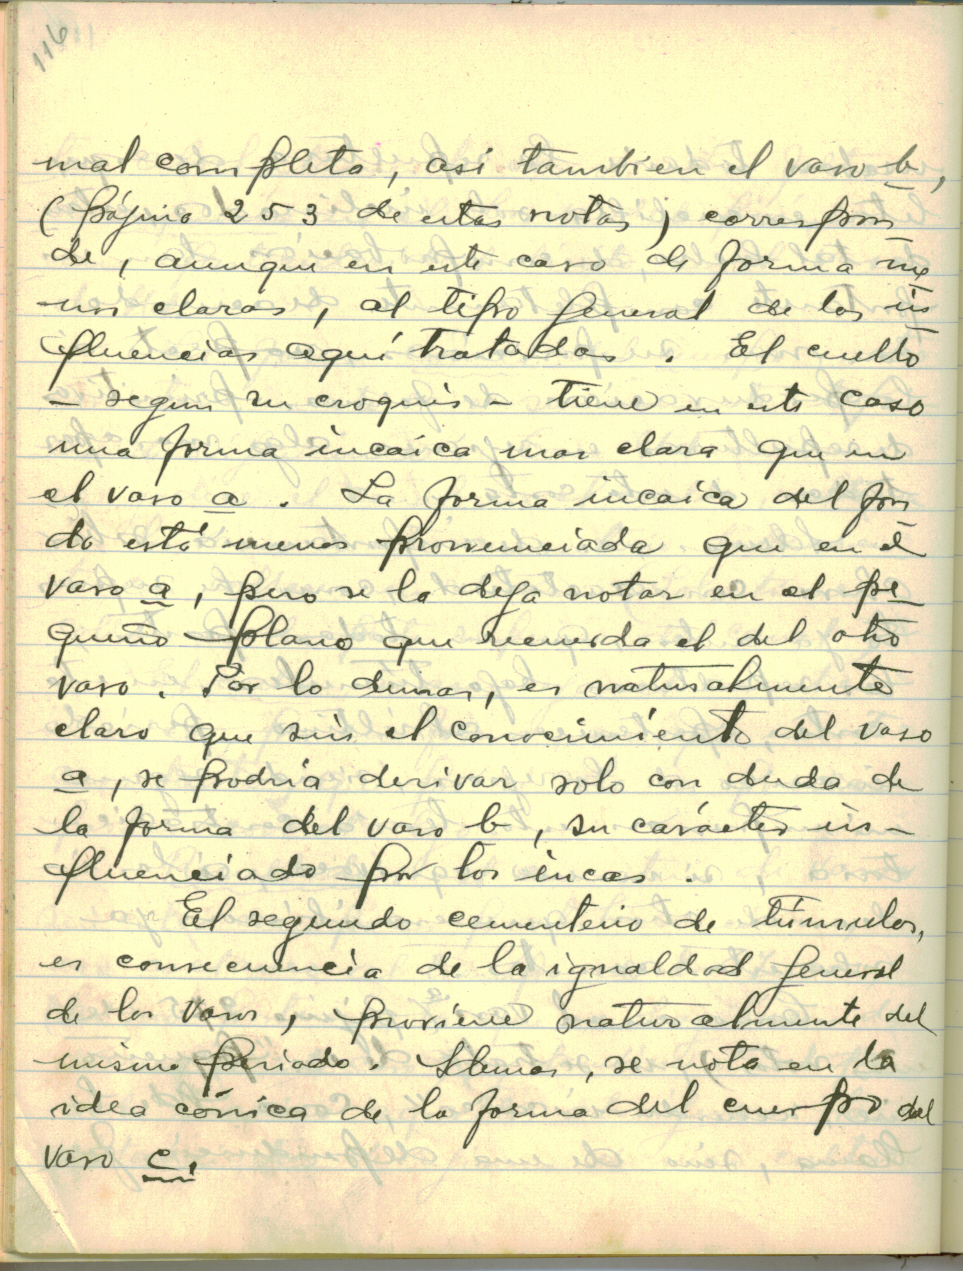 116
mal completo, asi tambien el vaso b,
(página 253 de estas notas) correspon
de, aunque en este caso de forma me
nos claras, al tipo general de las in
fluencias aquí tratadas. El cuello
- segun su croquis - tiene en este caso
una forma incaica mas clara que en
el vaso a. La forma incaica del fon
do está menos pronunciada que en el
vaso a, pero se la deja notar en el pe
queño plano que recuerda el del otro
vaso. Por lo demas, es naturalmente
claro que sin el conocimiento del vaso
a, se podria derivar solo con duda de
la forma del vaso b, su carácter in-
fluenciado por los incas.
El segundo cementerio de túmulos,
es consecuencia de la igualdad general
de los vasos, proviene naturalmente del
mismo periodo. , se nota en la
idea cónica de la forma del cuerpo del
vaso c.